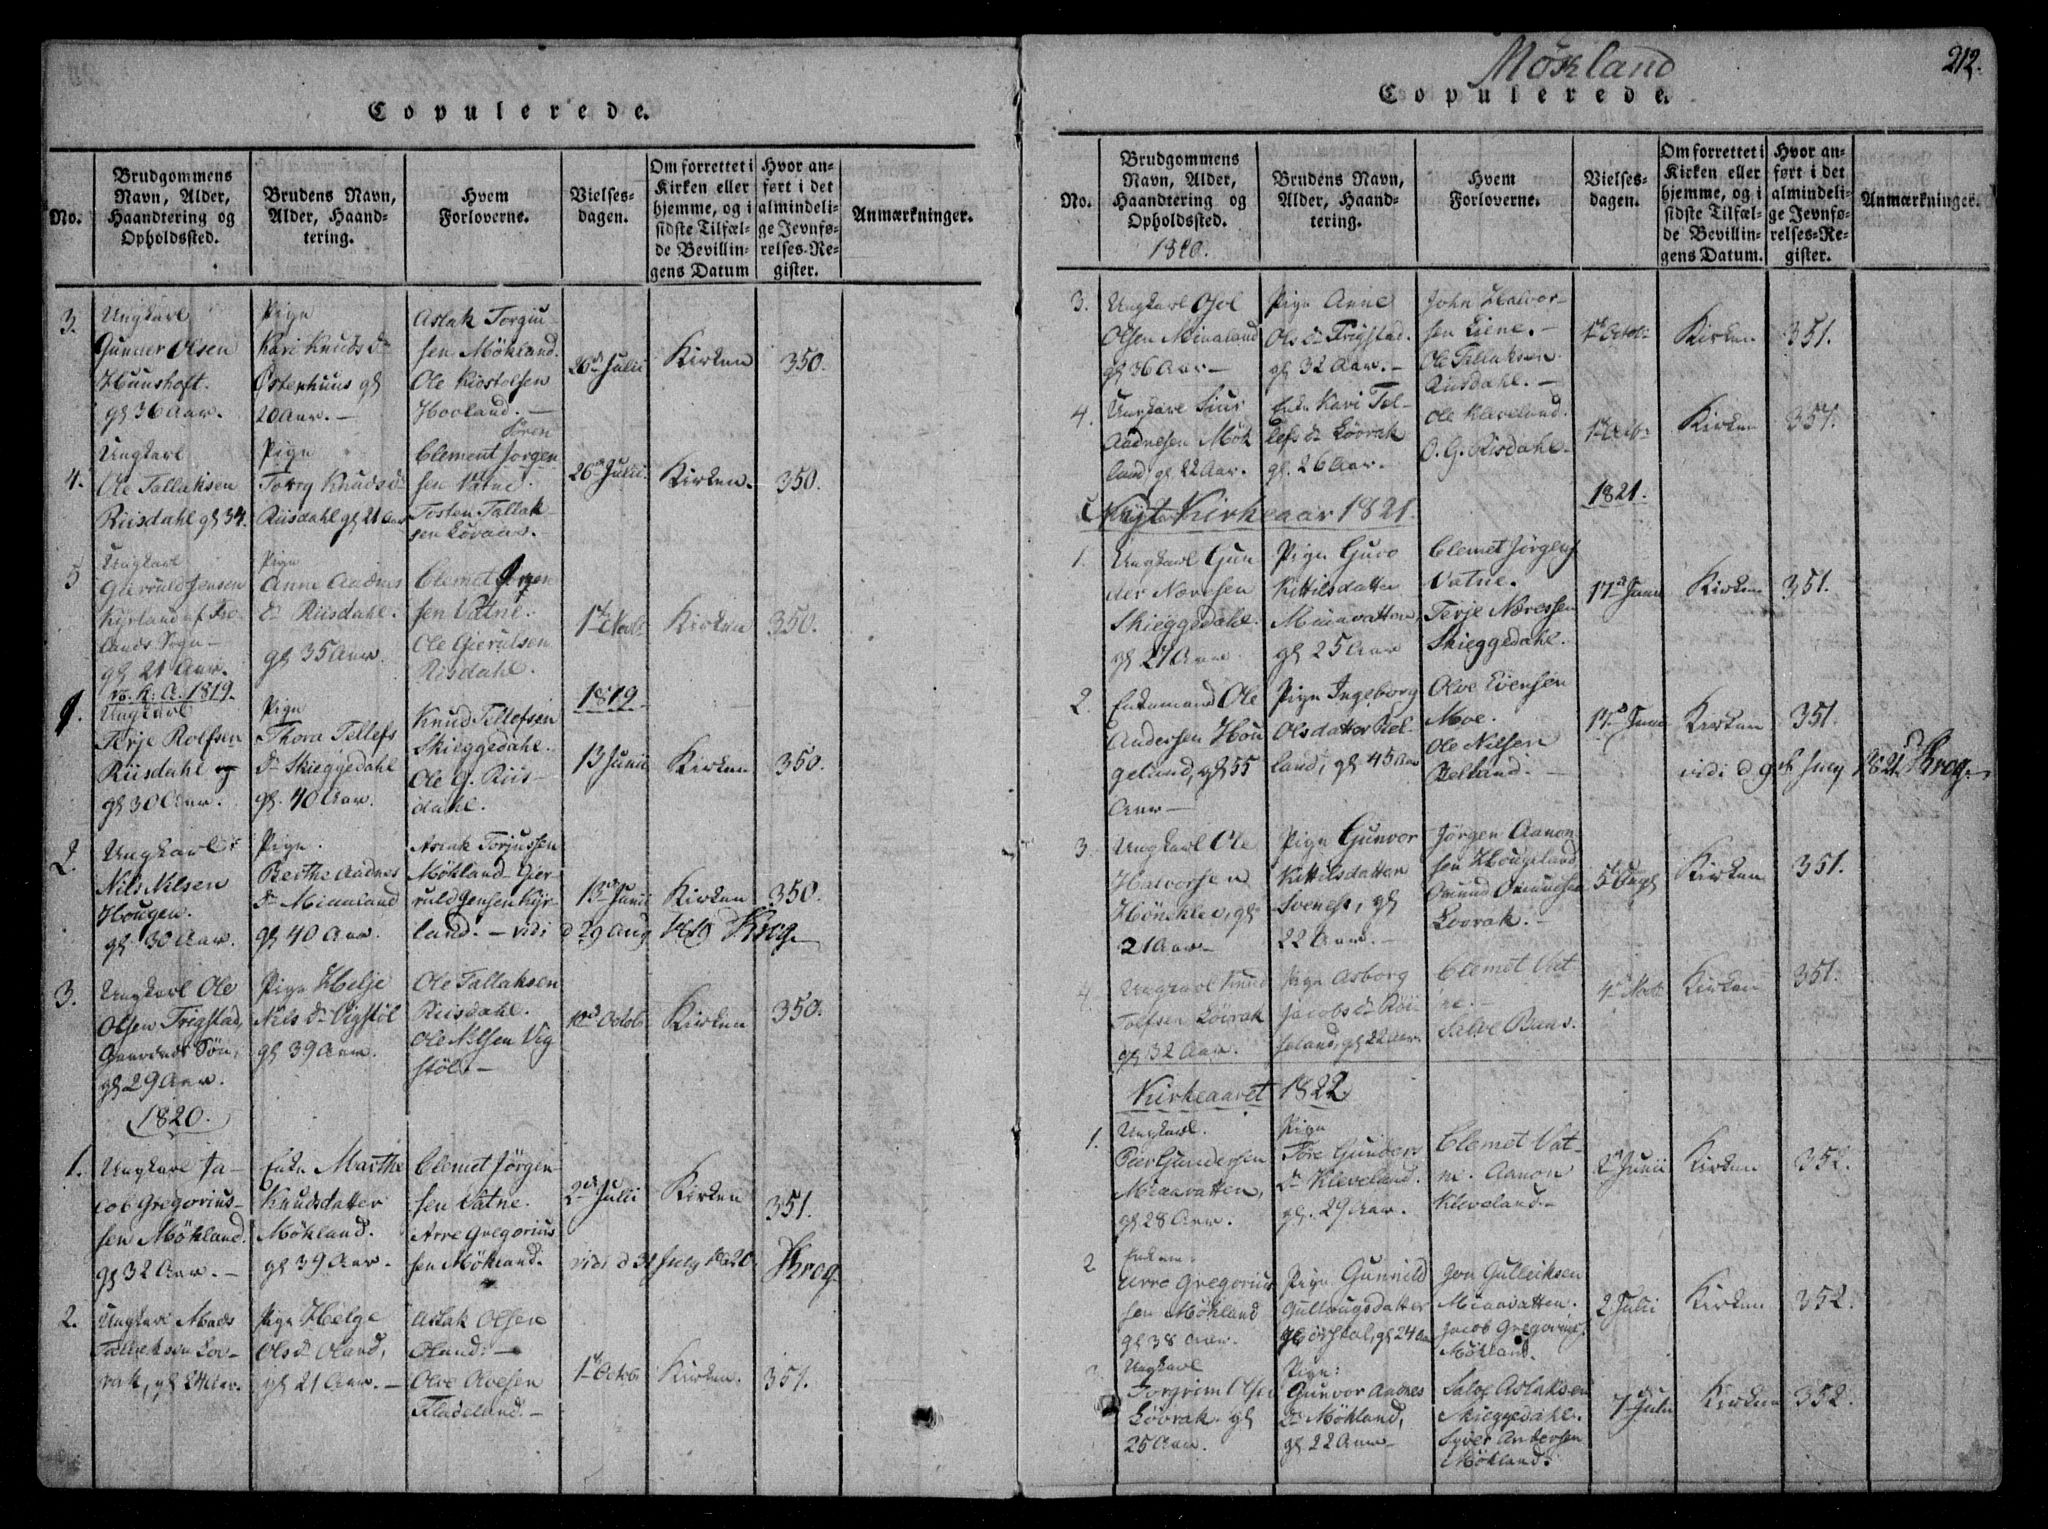 Copulerede.
No.
Brudgommens
Navn, Alder,
Haandtering og
Opholdssted.
Brudens Navn,
Alder, Haand-
tering.
Hvem
Forloverne.
Vielses-
dagen.
Om forrettet i
Kirken eller
hjemme, og i
sidste Tilfæl-
de Bevillin-
gens Datum
Hvor an-
ført i det
almindeli-
ge Jevnfø-
relses-Re-
gister.
Anmærkninger.
3.
Ungkarl
Gunner Olsen
Hunshoft.
gl 36 Aar.
Pige
Kari Knuds dr
gl
20 Aar. –
Aslak Torgiu-
sen Mökland.
Ole Kiostolsen
Hovland. –
26de Julii
Kirken
350.
4.
Ungkarl
Ole Tallaksen
Riisdahl gl 34.
Pige
Torry Knuds dr
Riisdahl gl 21 Aar
Sören
Clement Jorgen-
sen Vatne.
Tosten Tallak
sen Lövaas.
26de Julii.
Kirken.
350.
5
Ungkarl
Gierruld Jensen
Kyrland af Fro-
lands Sogn –
gl 21 Aar.
Pige
Anne Aadnes
dr Riisdahl.
gl 35 Aar.
Clemet Jorgen
sen Vatne.
Ole Gierulsen
Risdahl.
1te Novbr
Kirken
350.
K. A. 1819.
1819
1.
Ungkarl
Terje Rolfsen
Riisdahl og
gl 30 Aar.
Pige
Thora Tellefs
dr Skieggedahl
gl. 40 Aar.
Knud Tellefsen
Skieggedahl.
Ole G. Riis-
dahl.
13 Junii
Kirken
350.
2.
Ungkarl
Nils Nilsen
Hougen.
gl 30 Aar.
Pige.
Berthe Aadnes
dr Miaaland
gl 40 Aar.
Aslak Torjussen
Mökland Gier-
ruld Jensen Kyr-
land. – vidi d 29 Aug 1819 Krog.
13de Junii
Kirken
350.
3.
Ungkarl Ole
Olsen Trigstad,
Gaardmds Søn,
gl 29 Aar.
Pige Helje
Nils dr Vigstöl
gl 39 Aar.
Ole Tallaksen
Riisdahl.
Ole Nilsen Vig
stöl. –
Octobr
Kirken
350.
1820.
1.
Ungkarl Ja-
cob Gregorius-
sen Mökland.
gl 32 Aar. –
Enke Marthe
Knudsdatter
Mökland.
gl 39 Aar.
Clemet Jörgen-
sen Vatne.
Arre Gregorius
sen Mökland.
2de Julii
Kirken
351.
vidi d 31 July 1820. Krog
2.
Ungkarl Mads
Tallaksen Lov-
rak, gl 24 Aar.
Pige Helge
Ols dr Oland,
gl 21 Aar. –
Aslak Olsen
Oland. –
Olve Avesen
Fladeland. –
1te Octobr
Kirken.
351.
Mökland
212.
Copulerede.
No.
Brudgommens
Navn, Alder,
Haandtering og
Opholdssted.
1820.
Brudens Navn,
Alder, Haand-
tering.
Hvem
Forloverne.
Vielses-
dagen.
Om forrettet i
Kirken eller
hjemme, og i
sidste Tilfæl-
de Bevillin-
gens Datum.
Hvor an-
ført i det
almindeli-
ge Jevnfø-
relses-Re-
gister.
Anmærkninger.
3.
Ungkarl Ojol
Olsen Miaaland
gl 36 Aar –
Pige Anne
Ols dr Trigstad.
gl 32 Aar. –
John Halvor-
sen Liene. –
Ole Tallaksen
Riisdahl. –
1te Octobr
Kirken
351.
4.
Ungkarl Sivr
Aadnesen Mök
land, gl 22 Aar.
Enke Kari Tel-
lefs dr Lövrak
gl. 26 Aar.
Ole Kleveland.
O. G. Risdahl.
1te Octbr
Kirken
351.
Nÿt Kirkeaar 1821.
1821.
1.
Ungkarl Gun
der Nærefsen
Skieggedahl.
gl 27 Aar
Pige Guro
Kittilsdatter
Miaavatten,
gl 25 Aar
Clemet Jörgens
Vatne.
Terje Nærefsen
Skieggedahl.
17de Junii
Kirken
351.
2.
Enkemand Ole
Andersen Hou
gelund, gl 55
Aar –
Pige Ingeborg
Olsdatter Hel-
land, gl 45 Aar
Olve Evensen
Moe.
Ole Nilsen
Helland. –
17de Junii
Kirken
351.
vidi d 9de July 1821 Krog.
3.
Ungkarl Ole
Halvorsen
gl
21 Aar –
Pige Gunvor
Kittilsdatter
Svenes, gl
22 Aar. –
Jörgen Aanon
sen Hougeland
Omund Omundsen
Lövrak. –
5te Aug
Kirken
351.
4
Ungkarl Knud
Tolfsen Lövrak
gl 32 Aar.
Pige Asborg
Jacobs dr Röi-
seland, gl 22 Aar.
Clemet Vat-
ne. –
Salve Baas.
4de Novbr
Kirken
351.
Kirkeaaret 1822
1.
Ungkarl.
Peer Gundersen
Miaavatten,
gl 28 Aar.
Pige
Töre Gunders
dr Kleveland.
gl. 29 Aar.
Clemet Vat-
ne. Aanon
Kleveland. –
2de Junii
Kirken
352.
2
Enkem:
Arre Gregorius
sen Mökland
gl 38 Aar.
Pige Gunnild
Gullougsdatter
gl 24 Aar
Jon Gulleiksen
Miaavatten.
Jacob Gregorius
Mökland.
2 Julii
Kirken
352.
3
Ungkarl
Torgrim Olsen
Lövrak. gl
25 Aar.
Pige:
Gunvor Aadnes
dr Mökland,
gl 22 Aar –
Salve Aslaksen
Skieggedahl.
Syver Andersen
Mökland.
7de Julii
Kirken
352.